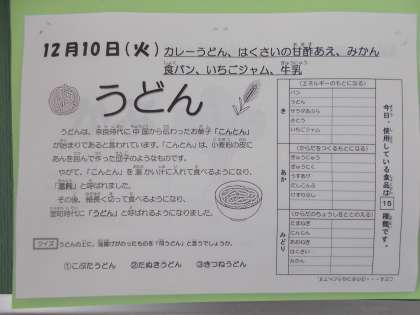 12月10日(火) カレーうどん、はくさいの甘酢あえ、みかん
食パン、いちごジャム、牛乳
うどん
うどんは、奈良時代に中国から伝わったお菓子「こんとん」
が始まりであると言われています。「こんとん」は、小麦粉の皮に
あんを包んで作った団子のようなものです。
やがて、「こんとん」を温かい汁に入れて食べるようになり、
「温飩」と呼ばれました。
その後、細長く切って食べるようになり、
室町時代に「うどん」と呼ばれるようになりました。
クイズ うどんの上に、油揚げがのったものを「何うどん」と言うでしょうか。
①こぶたうどん ②たぬきうどん ③きつねうどん
き
(エネルギーのもとになる)
パン
うどん
サラダあぶら
さとう
いちごジャム
あか
(からだをつくるもとになる)
ぎゅうにゅう
ぎゅうにく
だいこんぶ
みどり
(からだのちょうしをととのえる)
たまねぎ
にんじん
はくさい
みかん
今日、使用している食品は
15
種類です。